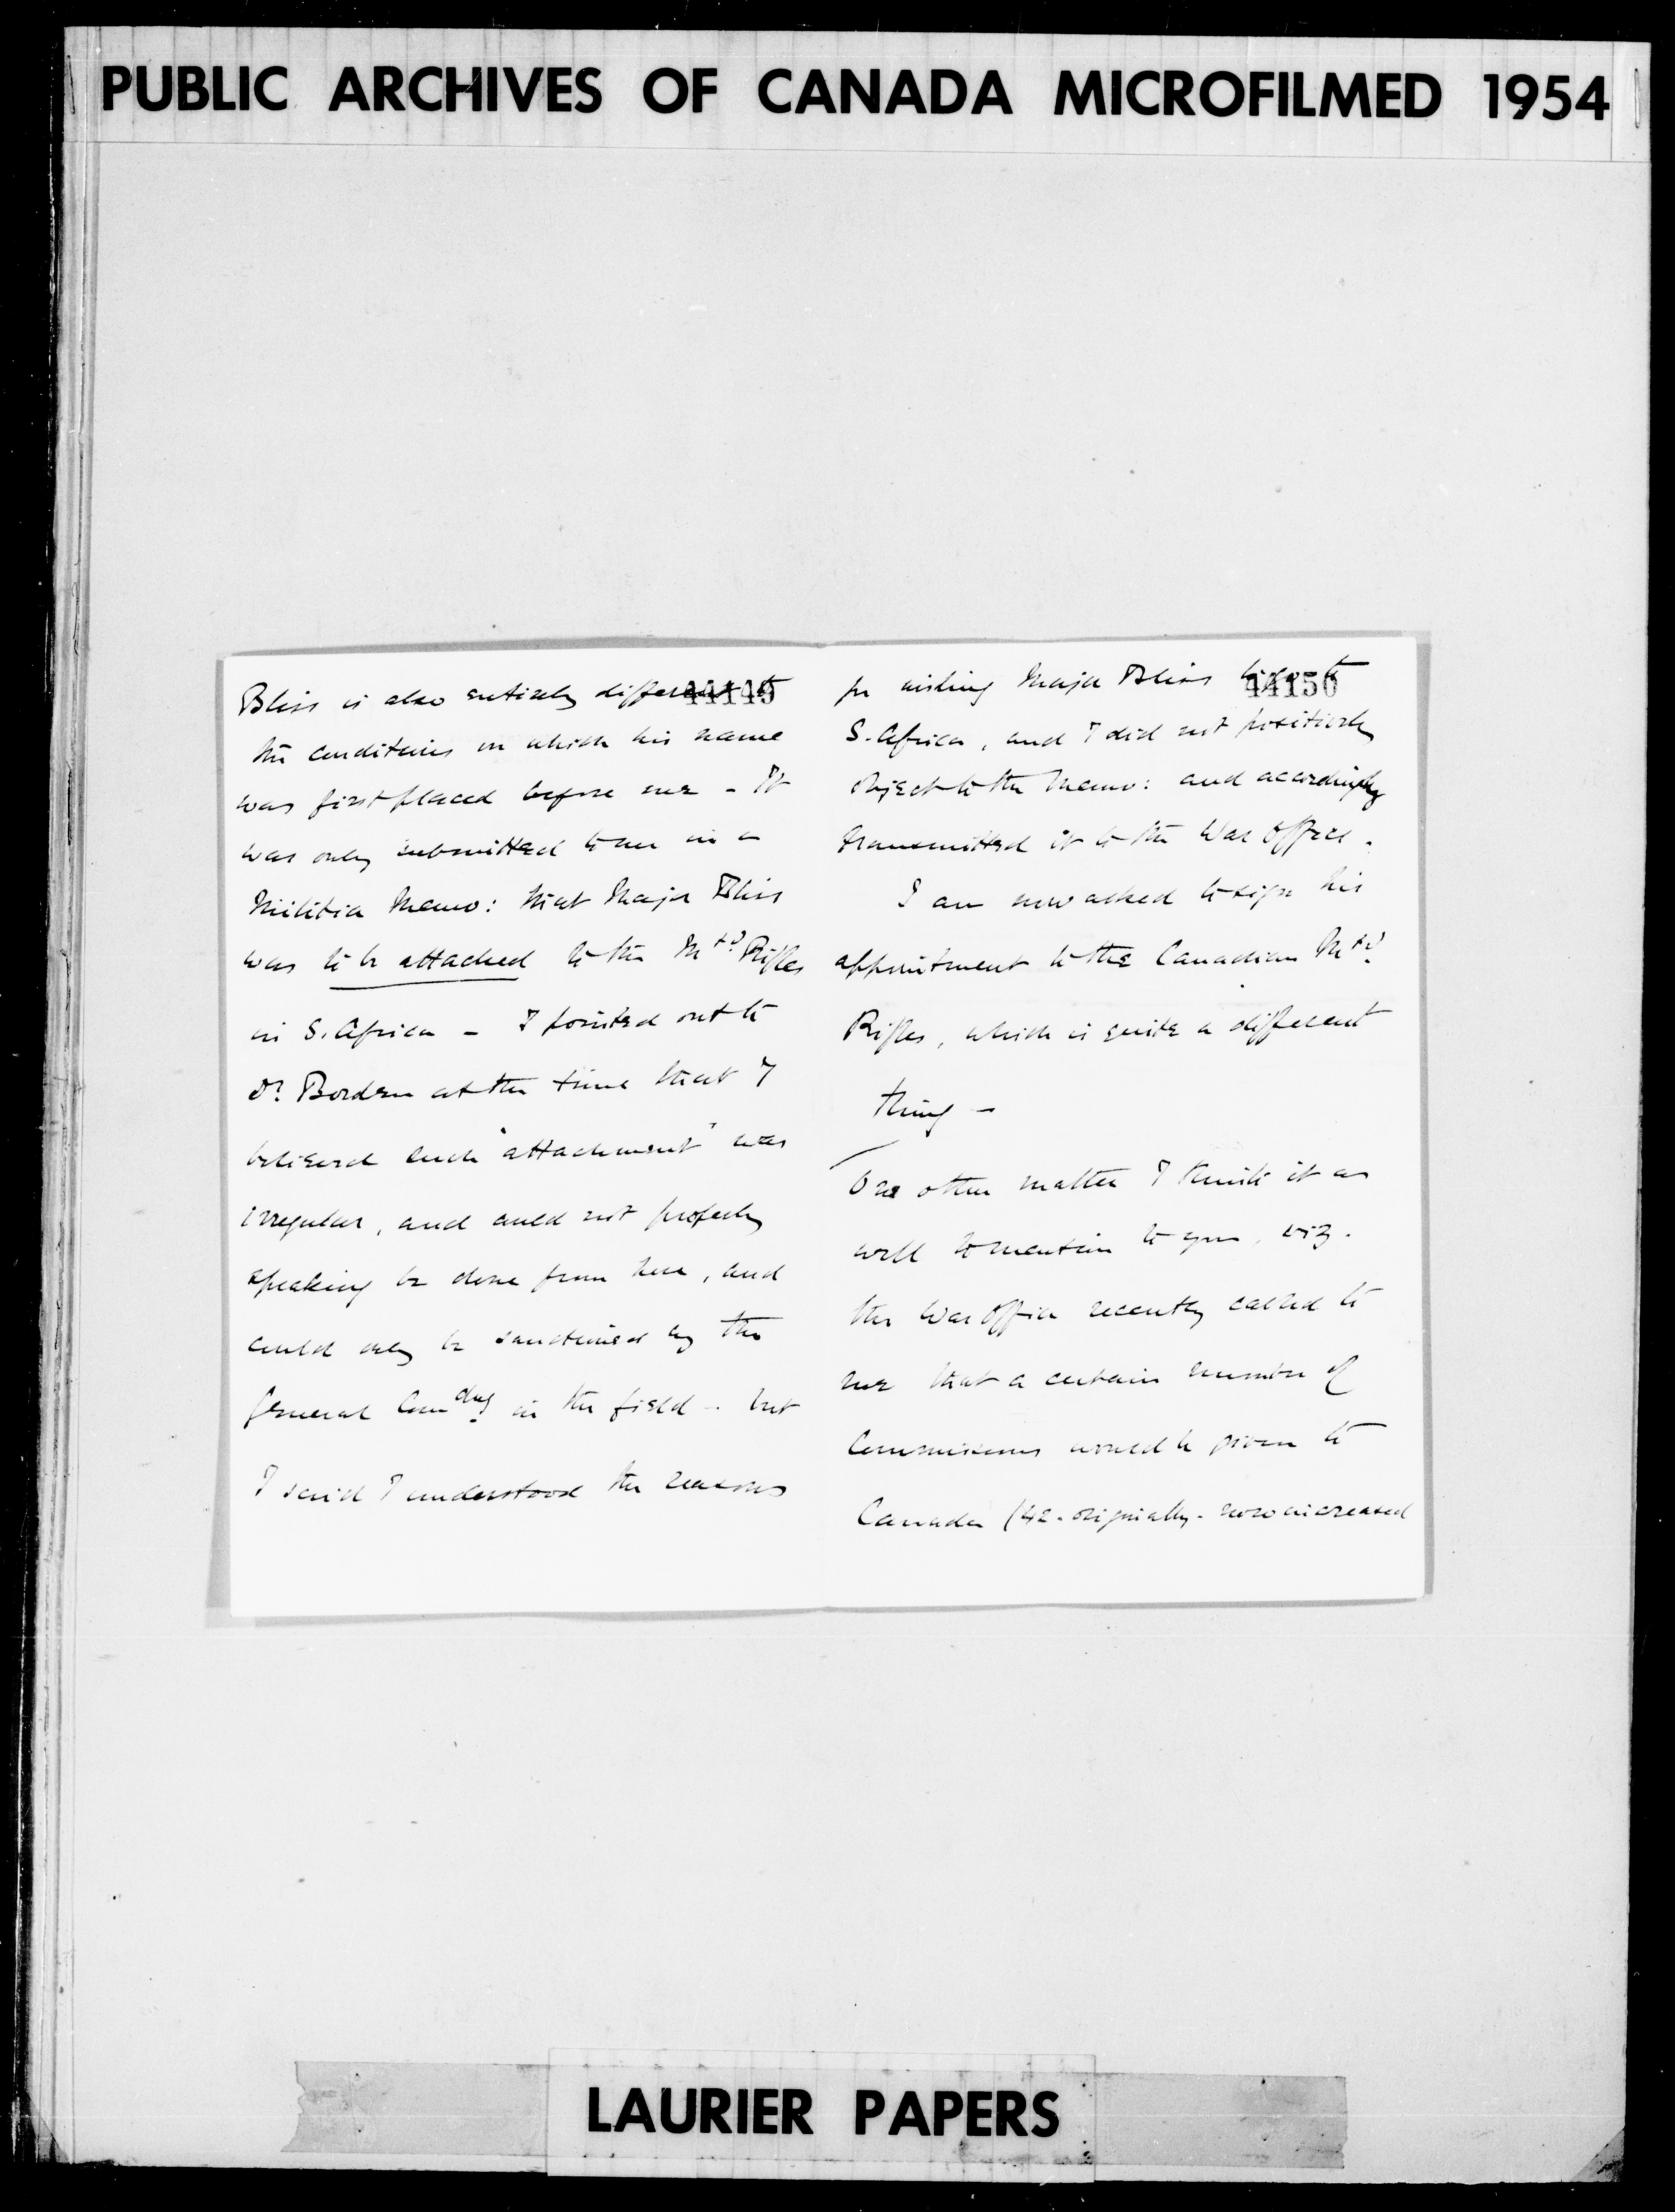 PUBLIC ARCHIVES OF CANADA MICROFILMED 1954
44149
Bliss is also entirely different to
the conditions in which his name
was first placed before me - It
was only submitted to me in a
Militia Memo: that Major Bliss
was to be attached to the Mtd Rifles
in S. Africa - I pointed out to
Dr Borden at the time that I
believed such "attachment" was
irregular, and could not properly
speaking be done from here, and
could only be sanctioned by the
General Comdng in the field - but
I said I understood the reasons
44150
for wishing Major Bliss to go to
S. Africa, and I did not positively
object to the Memo: and accordingly
transmitted it to the War Office.
I am now asked to sign his
appointment to the Canadian Mtd
Rifles, which is quite a different
thing -
One other matter I think it as
well to mention to you, viz.
the War Office recently cabled to
me that a certain number of
Commissions would be given to
Canada (42 - originally - now increased
LAURIER PAPERS